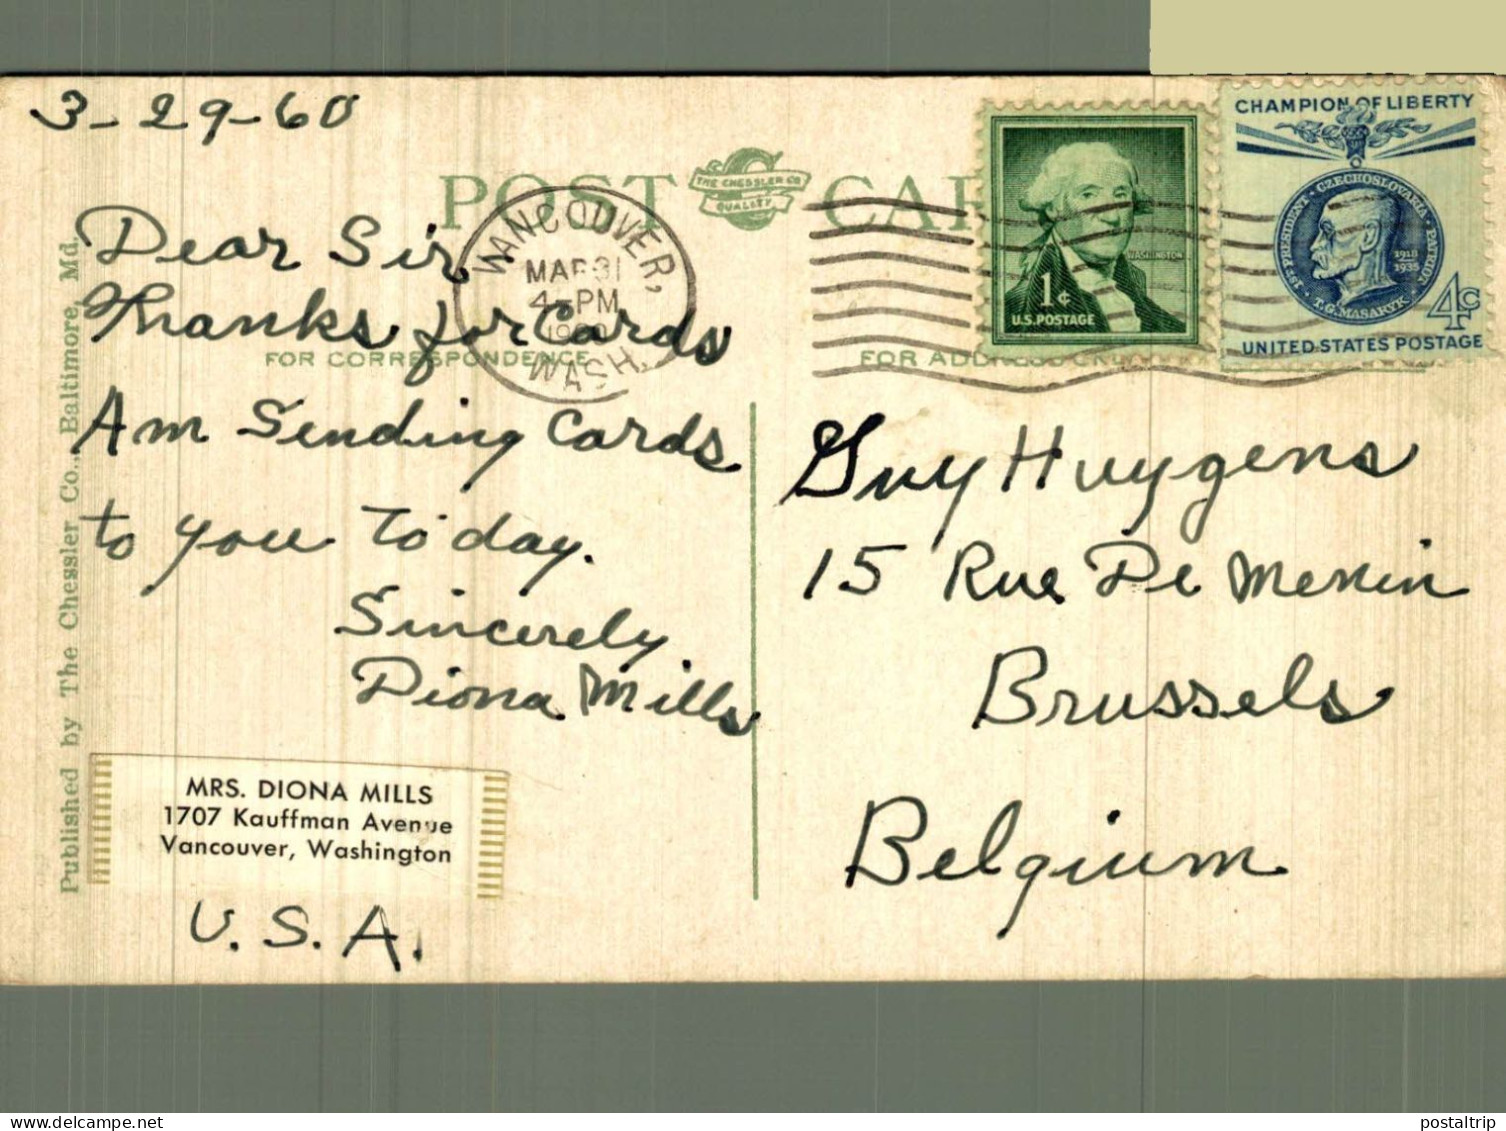 3-29-60
POST CARD
THE CHESSLER CO
QUALITY
VANCOUVER,
MAR 31
4-PM
1960
WASH.
1¢
WASHINGTON
U.S. POSTAGE
CHAMPION OF LIBERTY
PRESIDENT · CZECHOSLOVAKIA · PATRIOT
1918
1935
T.G. MASARYK
4c
UNITED STATES POSTAGE
FOR CORRESPONDENCE
FOR ADDRESS ONLY
Dear Sir,
Thanks for Cards
Am Sending Cards
to you today.
Sincerely
Diona Mills
MRS. DIONA MILLS
1707 Kauffman Avenue
Vancouver, Washington
U.S.A.
Published by The Chessler Co., Baltimore, Md.
Guy Huygens
15 Rue De Menin
Brussels
Belgium
postaltrip